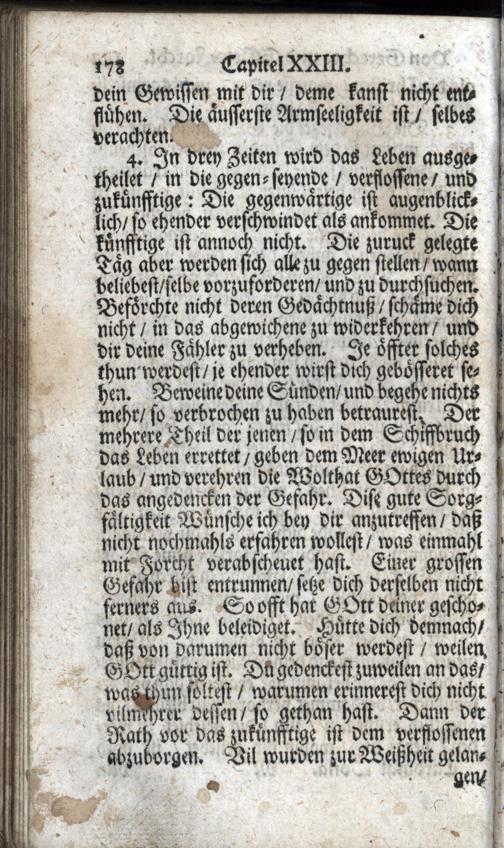 178 Capitel XXIII.
dein Gewissen mit dir / deme kanst nicht ent⸗
flühen. Die äusserste Armseeligkeit ist / selbes
verachten.
4. In drey Zeiten wird das Leben ausge⸗
theilet / in die gegen⸗seyende / verflossene / und
zukünfftige : Die gegenwärtige ist augenblick⸗
lich / so ehender verschwindet als ankommet. Die
künfftige ist annoch nicht. Die zuruck gelegte
Täg aber werden sich alle zu gegen stellen / wann
beliebest / selbe vorzuforderen / und zu durchsuchen.
Beförchte nicht deren Gedächtnuß / schäme dich
nicht / in das abgewichene zu widerkehren / und
dir deine Fähler zu verheben. Je öffter solches
thun werdest / je ehender wirst dich gebösseret se⸗
hen. Beweine deine Sünden / und begehe nichts
mehr / so verbrochen zu haben betraurest. Der
mehrere Theil der jenen / so in dem Schiffbruch
das Leben errettet / geben dem Meer ewigen Ur⸗
laub / und verehren die Wolthat GOttes durch
das angedencken der Gefahr. Dise gute Sorg⸗
fältigkeit Wünsche ich bey dir anzutreffen / daß
nicht nochmahls erfahren wollest / was einmahl
mit Forcht verabscheuet hast. Einer grossen
Gefahr bist entrunnen / setze dich derselben nicht
ferners aus. So offt hat GOtt deiner gescho⸗
net / als Ihne beleidiget. Hütte dich demnach /
daß von darumen nicht böser werdest / weilen
GOtt güttig ist. Du gedenckest zuweilen an das /
was thun soltest / warumen erinnerest dich nicht
vilmehrer dessen / so gethan hast. Dann der
Rath vor das zukünfftige ist dem verflossenen
abzuborgen. Vil wurden zur Weißheit gelan⸗
gen /